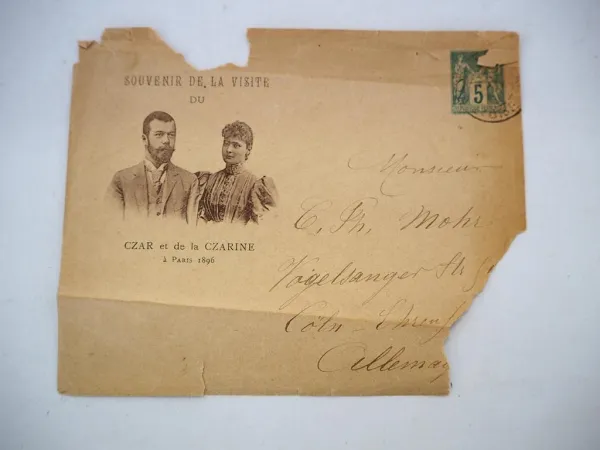 SOUVENIR DE LA VISITE
DU
CZAR et de la CZARINE
à PARIS 1896
5
Monsieur
C. Ph. Mohr
Vogelsanger Str
Cöln - Ehrenf
Allemag